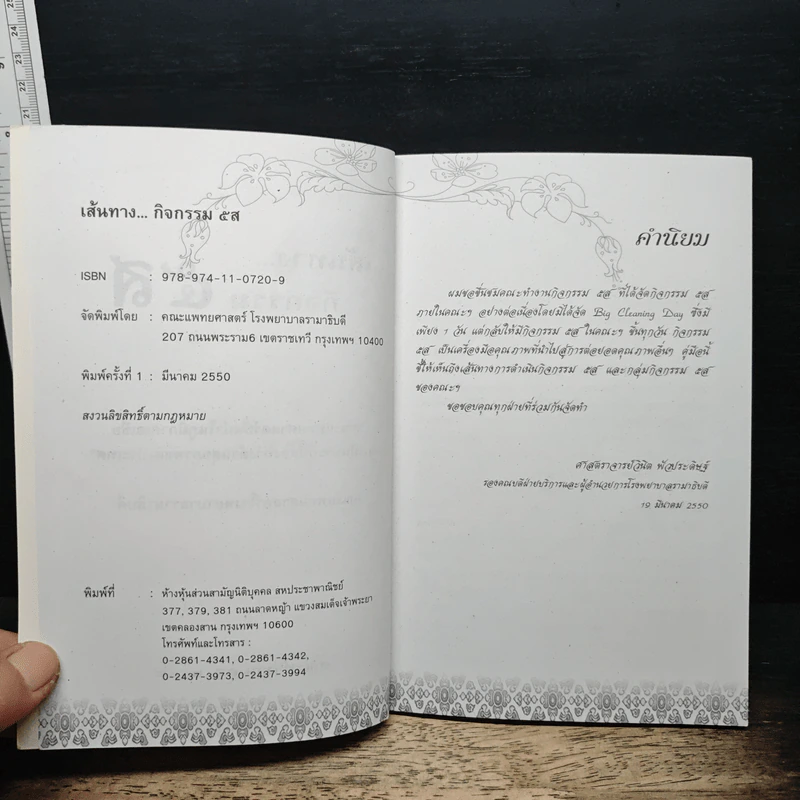 เส้นทาง... กิจกรรม ๕ส
ISBN : 978-974-11-0720-9
จัดพิมพ์โดย : คณะแพทยศาสตร์ โรงพยาบาลรามาธิบดี
207 ถนนพระราม6 เขตราชเทวี กรุงเทพฯ 10400
พิมพ์ครั้งที่ 1 : มีนาคม 2550
สงวนลิขสิทธิ์ตามกฎหมาย
พิมพ์ที่ : ห้างหุ้นส่วนสามัญนิติบุคคล สหประชาพาณิชย์
377, 379, 381 ถนนลาดหญ้า แขวงสมเด็จเจ้าพระยา
เขตคลองสาน กรุงเทพฯ 10600
โทรศัพท์และโทรสาร :
0-2861-4341, 0-2861-4342,
0-2437-3973, 0-2437-3994
คำนิยม
ผมขอชื่นชมคณะทำงานกิจกรรม ๕ส ที่ได้จัดกิจกรรม ๕ส
ภายในคณะฯ อย่างต่อเนื่องโดยมิได้จัด Big Cleaning Day ซึ่งมี
เพียง 1 วัน แต่กลับให้มีกิจกรรม ๕ส ในคณะฯ ขึ้นทุกวัน กิจกรรม
๕ส เป็นเครื่องมือคุณภาพที่นำไปสู่การต่อยอดคุณภาพอื่นๆ คู่มือนี้
ชี้ให้เห็นถึงเส้นทางการดำเนินกิจกรรม ๕ส และกลุ่มกิจกรรม ๕ส
ของคณะฯ
ขอขอบคุณทุกฝ่ายที่ร่วมกันจัดทำ
ศาสตราจารย์วินิต พัวประดิษฐ์
รองคณบดีฝ่ายบริการและผู้อำนวยการโรงพยาบาลรามาธิบดี
19 มีนาคม 2550